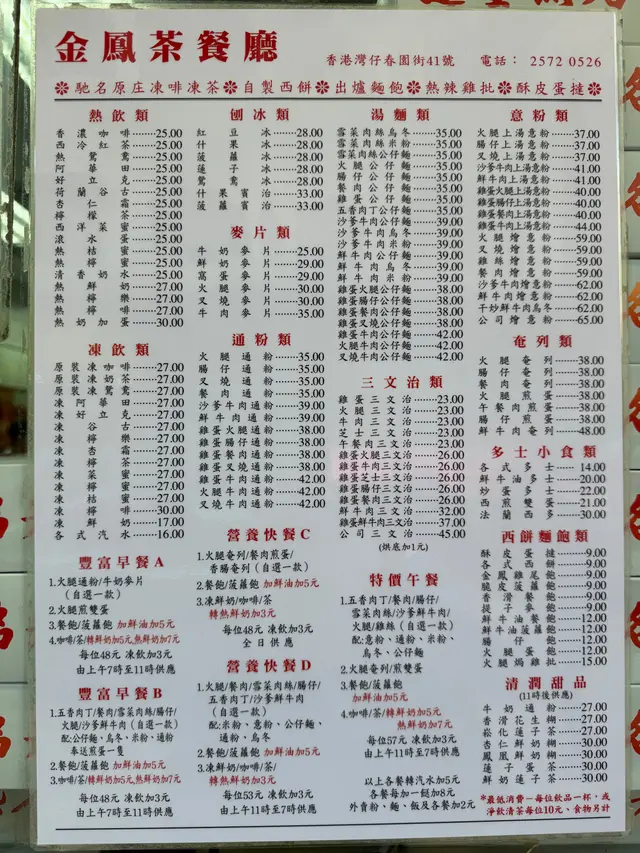 金鳳茶餐廳
香港灣仔春園街41號 電話： 2572 0526
馳名原庄凍啡凍茶 自製西餅 出爐麵飽 熱辣雞批 酥皮蛋撻
熱飲類
香濃咖啡……25.00
西冷紅茶……25.00
熱鴛鴦……25.00
阿華田……25.00
好立克……25.00
荷蘭谷古……25.00
杏仁霜……25.00
檸檬茶……25.00
西洋菜蜜……25.00
滾水蛋……25.00
熱桔蜜……25.00
熱檸蜜……25.00
清香奶水……25.00
熱鮮奶……27.00
熱檸樂……27.00
熱檸啡……27.00
熱奶加蛋……30.00
凍飲類
原裝凍咖啡……27.00
原裝凍奶茶……27.00
原裝凍鴛鴦……27.00
凍阿華田……27.00
凍好立克……27.00
凍谷古……27.00
凍檸樂……27.00
凍杏霜……27.00
凍檸茶……27.00
凍菜蜜……27.00
凍檸蜜……27.00
凍桔蜜……27.00
凍檸啡……30.00
凍鮮奶……17.00
各式汽水……16.00
豐富早餐A
1.火腿通粉/牛奶麥片
（自選一款）
2.火腿煎雙蛋
3.餐飽/菠蘿飽 加鮮油加5元
4.咖啡/茶/轉鮮奶加5元,熱鮮奶加7元
每位48元 凍飲加3元
由上午7時至11時供應
豐富早餐B
1.五香肉丁/餐肉/雪菜肉絲/腸仔/
火腿/沙爹鮮牛肉（自選一款）
配:公仔麵、烏冬、米粉、通粉
奉送煎蛋一隻
2.餐飽/菠蘿飽 加鮮油加5元
3.咖啡/茶/轉鮮奶加5元,熱鮮奶加7元
每位48元 凍飲加3元
由上午7時至11時供應
刨冰類
紅豆冰……28.00
什果冰……28.00
菠蘿冰……28.00
蓮子冰……28.00
鴛鴦冰……28.00
什果賓治……33.00
菠蘿賓治……33.00
麥片類
牛奶麥片……25.00
鮮奶麥片……29.00
窩蛋麥片……29.00
火腿麥片……30.00
叉燒麥片……30.00
牛肉麥片……35.00
通粉類
火腿通粉……35.00
腸仔通粉……35.00
叉燒通粉……35.00
餐肉通粉……35.00
沙爹牛肉通粉……39.00
鮮牛肉通粉……39.00
雞蛋火腿通粉……38.00
雞蛋腸仔通粉……38.00
雞蛋餐肉通粉……38.00
雞蛋叉燒通粉……38.00
雞蛋牛肉通粉……42.00
火腿牛肉通粉……42.00
叉燒牛肉通粉……42.00
營養快餐C
1.火腿奄列/餐肉煎蛋/
香腸奄列（自選一款）
2.餐飽/菠蘿飽 加鮮油加5元
3.凍鮮奶/咖啡/茶
轉熱鮮奶加3元
每位48元 凍飲加3元
全日供應
營養快餐D
1.火腿/餐肉/雪菜肉絲/腸仔/
五香肉丁/沙爹鮮牛肉
（自選一款）
配:米粉、意粉、公仔麵、
通粉、烏冬
2.餐飽/菠蘿飽 加鮮油加5元
3.凍鮮奶/咖啡/茶/
轉熱鮮奶加3元
每位53元 凍飲加3元
由上午11時至7時供應
湯麵類
雪菜肉絲烏冬……35.00
雪菜肉絲米粉……35.00
雪菜肉絲公仔麵……35.00
火腿公仔麵……35.00
腸仔公仔麵……35.00
餐肉公仔麵……35.00
雞蛋公仔麵……35.00
五香肉丁公仔麵……35.00
沙爹牛肉公仔麵……39.00
沙爹牛肉烏冬……39.00
沙爹牛肉米粉……39.00
鮮牛肉公仔麵……39.00
鮮牛肉烏冬……39.00
鮮牛肉米粉……39.00
雞蛋火腿公仔麵……38.00
雞蛋腸仔公仔麵……38.00
雞蛋餐肉公仔麵……38.00
雞蛋叉燒公仔麵……38.00
雞蛋牛肉公仔麵……42.00
火腿牛肉公仔麵……42.00
叉燒牛肉公仔麵……42.00
三文治類
雞蛋三文治……23.00
火腿三文治……23.00
牛肉三文治……23.00
芝士三文治……23.00
午餐肉三文治……23.00
雞蛋火腿三文治……26.00
雞蛋牛肉三文治……26.00
雞蛋芝士三文治……26.00
雞蛋腸仔三文治……26.00
雞蛋餐肉三文治……26.00
鮮牛肉三文治……32.00
雞蛋鮮牛肉三文治……37.00
公司三文治……45.00
(烘底加1元)
特價午餐
1.五香肉丁/餐肉/腸仔/
雪菜肉絲/沙爹鮮牛肉/
火腿/雞絲（自選一款）
配:意粉、通粉、米粉、
烏冬、公仔麵
2.火腿奄列/煎雙蛋
3.餐飽/菠蘿飽
加鮮油加5元
4.咖啡/茶/轉凍鮮奶加5元
熱鮮奶加7元
每位57元 凍飲加3元
由上午11時至7時供應
以上各餐轉汽水加5元
各餐每加一餸加8元
外賣粉、麵、飯及各餐加2元
意粉類
火腿上湯意粉……37.00
腸仔上湯意粉……37.00
叉燒上湯意粉……37.00
沙爹牛肉上湯意粉……41.00
鮮牛肉上湯意粉……41.00
雞蛋火腿上湯意粉……40.00
雞蛋腸仔上湯意粉……40.00
雞蛋餐肉上湯意粉……40.00
雞蛋牛肉上湯意粉……44.00
火腿燴意粉……59.00
叉燒燴意粉……59.00
雞絲燴意粉……59.00
餐肉燴意粉……59.00
沙爹牛肉燴意粉……62.00
鮮牛肉燴意粉……62.00
干炒鮮牛肉烏冬……62.00
公司燴意粉……65.00
奄列類
火腿奄列……38.00
腸仔奄列……38.00
餐肉奄列……38.00
火腿煎蛋……38.00
午餐肉煎蛋……38.00
腸仔煎蛋……38.00
鮮牛肉奄列……48.00
多士小食類
各式多士……14.00
鮮牛油多士……20.00
炒蛋多士……22.00
西煎雙蛋……21.00
法蘭西多士……30.00
西餅麵飽類
酥皮蛋撻……9.00
各式西餅……9.00
金鳳雞尾飽……9.00
脆皮菠蘿飽……9.00
香滑餐飽……9.00
提子麥飽……9.00
鮮牛油餐飽……12.00
鮮牛油菠蘿飽……12.00
腸仔飽……12.00
火腿蛋飽……12.00
火腿焗雞批……15.00
清潤甜品
(11時後供應)
牛奶通粉……27.00
香滑花生糊……27.00
崧化蓮子茶……27.00
杏仁鮮奶糊……30.00
鳳凰鮮奶糊……30.00
蓮子蛋茶……30.00
鮮奶蓮子茶……30.00
*最低消費－每位飲品一杯，或
淨飲清茶每位10元、食物另計